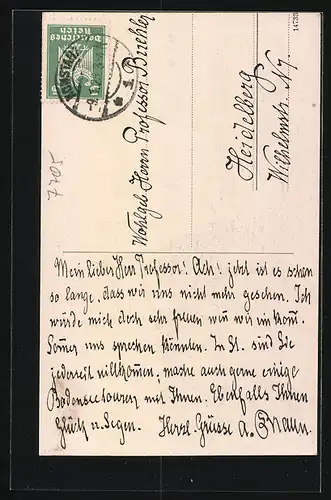 Deutsches
Reich
Wohlgeb. Herrn Professor Buehler
Heidelberg
Wilhelmstr. N 7.
1473
7705
Mein lieber Herr Professor! Ach! jetzt ist es schon
so lange, dass wir uns nicht mehr gesehen. Ich
würde mich doch sehr freuen wenn wir im Kom.
Somer uns sprechen könnten. In St. sind Sie
jederzeit willkommen, mache auch gerne einige
Bodenseetouren mit Ihnen. Ebenfalls Ihnen
Glück u. Segen. Herzl. Grüsse A. Braun.